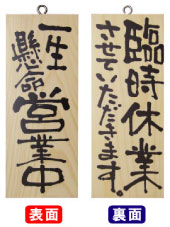 一生
懸命
営業中
臨時休業
させていただきます。
表面
裏面